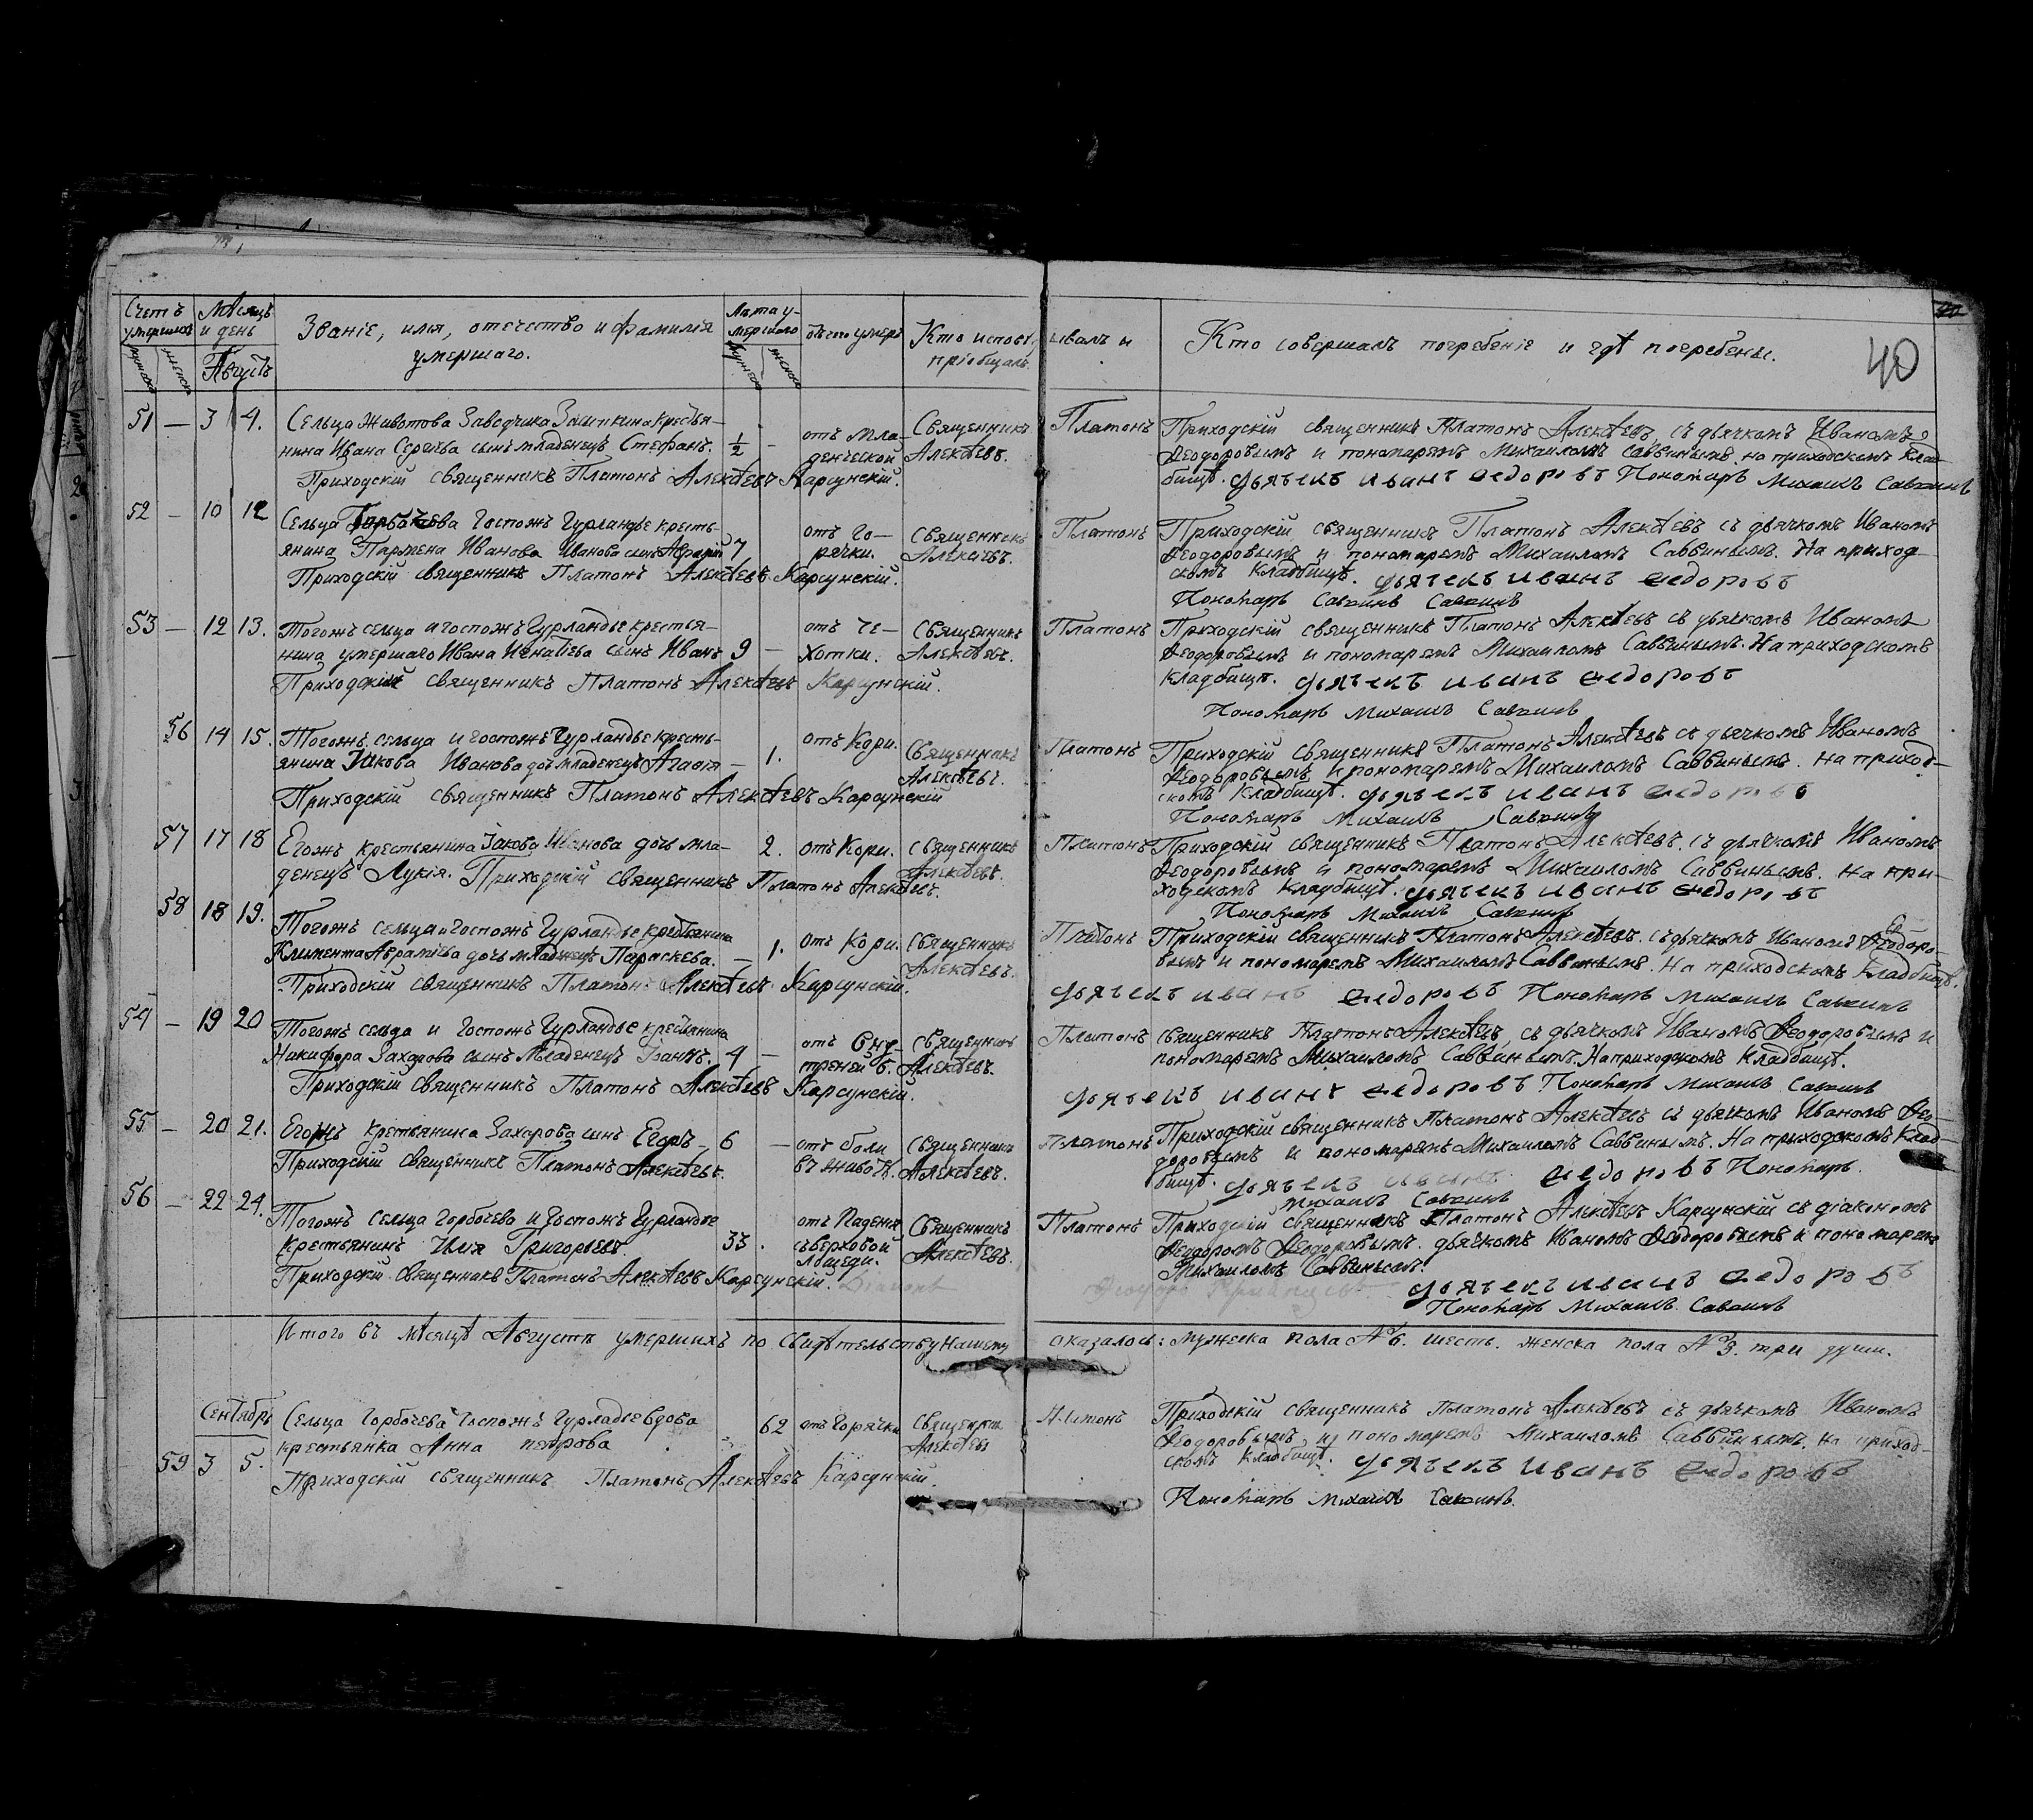 40
Счетъ умершихъ
мужеска женска
Мѣсяцъ и день
Августъ
Званіе, имя, отечество и фамилія
умершаго.
Лѣта умершаго
мужеска женска
отъ чего умеръ
Кто исповѣдывалъ и
пріобщалъ.
Кто совершалъ погребеніе и гдѣ погребены.
51 — 3 4.
Сельца Животова Заводчика крестья-
нина Ивана Сергѣева сынъ младенецъ Стефанъ.
Приходскій священникъ Платонъ Алексѣевъ Карсунскій.
1/2 —
отъ мла-
денческой
Священникъ Платонъ
Алексѣевъ.
Приходскій священникъ Платонъ Алексѣевъ, съ дьячкомъ Иваномъ
Ѳеодоровымъ и пономаремъ Михаиломъ Саввинымъ. на приходскомъ клад-
бищѣ. дьячекъ иванъ ѳедоровъ Пономарь Михаилъ Савинъ
52 — 10 12
Сельца Горбачева Госпожъ Гурландъе кресть-
янина Пармена Иванова сынъ 7
Приходскій священникъ Платонъ Алексѣевъ Карсунскій.
отъ го-
рячки.
Священникъ Платонъ
Алексѣевъ.
Приходскій священникъ Платонъ Алексѣевъ съ дьячкомъ Иваномъ
Ѳеодоровымъ и пономаремъ Михаиломъ Саввинымъ. На приход-
скомъ Кладбищѣ. дьячекъ иванъ ѳедоровъ
Пономарь Савинъ Савинъ
53 — 12 13.
Тогожъ сельца и госпожъ Гурландъе крестья-
нина умершаго Ивана Игнатіева сынъ Иванъ 9 —
Приходскій священникъ Платонъ Алексѣевъ Карсунскій.
отъ че-
хотки.
Священникъ Платонъ
Алексѣевъ.
Приходскій священникъ Платонъ Алексѣевъ съ дьячкомъ Иваномъ
Ѳеодоровымъ и пономаремъ Михаиломъ Саввинымъ. На приходскомъ
кладбищѣ. дьячекъ иванъ ѳедоровъ
Пономарь Михаилъ Савинъ
56 14 15.
Тогожъ сельца и госпожъ Гурландъе кресть-
янина Іякова Иванова дочь младенецъ Агафія — 1.
Приходскій священникъ Платонъ Алексѣевъ Карсунскій
отъ Кори.
Священникъ Платонъ
Алексѣевъ.
Приходскій священникъ Платонъ Алексѣевъ съ дьячкомъ Иваномъ
Ѳеодоровымъ и пономаремъ Михаиломъ Саввинымъ. на приход-
скомъ Кладбищѣ. дьячекъ иванъ ѳедоровъ
Пономарь Михаилъ Савинъ
57 17 18
Егожъ крестьянина Іакова Иванова дочь мла- 2.
денецъ Лукія. Приходскій священникъ Платонъ Алексѣевъ.
отъ Кори.
священникъ Платонъ
Алексѣевъ.
Приходскій священникъ Платонъ Алексѣевъ. съ дьячкомъ Иваномъ
Ѳеодоровымъ и пономаремъ Михаиломъ Саввинымъ. На при-
ходскомъ кладбищѣ. дьячекъ иванъ ѳедоровъ
Пономарь Михаилъ Савинъ
58 18 19.
Тогожъ сельца и госпожъ Гурландъе крестьянина
Климента Авраміева дочь младенецъ Параскева. — 1.
Приходскій священникъ Платонъ Алексѣевъ Карсунскій.
отъ Кори.
священникъ Платонъ
Алексѣевъ.
Приходскій священникъ Платонъ Алексѣевъ. съ дьячкомъ Иваномъ Ѳеодоро-
вымъ и пономаремъ Михаиломъ Саввинымъ. На приходскомъ Кладбищѣ.
дьячекъ иванъ ѳедоровъ Пономарь Михаилъ Савинъ
54 — 19 20
Тогожъ сельца и госпожъ Гурландъе крестьянина
Никифора Захарова сынъ младенецъ Іоаннъ. 4 —
Приходскій священникъ Платонъ Алексѣевъ Карсунскій.
отъ Вну-
треней б.
Священникъ Платонъ
Алексѣевъ.
священникъ Платонъ Алексѣевъ, съ дьячкомъ Иваномъ Ѳеодоровымъ и
пономаремъ Михаиломъ Саввинымъ. На приходскомъ Кладбищѣ.
дьячекъ иванъ ѳедоровъ Пономарь Михаилъ Савинъ
55 — 20 21.
Егожъ крестьянина Захарова сынъ Егоръ — 6 —
Приходскій священникъ Платонъ Алексѣевъ.
отъ боли
въ животѣ.
священникъ Платонъ
Алексѣевъ.
Приходскій священникъ Платонъ Алексѣевъ съ дьячкомъ Иваномъ Ѳео-
доровымъ и пономаремъ Михаиломъ Саввинымъ. На приходскомъ Клад-
бищѣ. дьячекъ иванъ ѳедоровъ Пономарь
михаилъ Савинъ
56 — 22 24.
Тогожъ сельца Горбочево и Госпожъ Гурландъе
крестьянинъ Илія Григорьевъ. 33.
Приходскій священникъ Платонъ Алексѣевъ Карсунскій. Діаконъ
отъ Паденія
съ верховой
лошеди.
Священникъ Платонъ
Алексѣевъ.
Приходскій священникъ Платонъ Алексѣевъ Карсунскій съ діакономъ
Ѳеодоромъ Ѳеодоровымъ. дьячкомъ Иваномъ Ѳеодоровымъ и пономаремъ
Михаиломъ Саввинымъ.
дьячекъ иванъ ѳедоровъ
Пономарь Михаилъ Савинъ
Итого въ мѣсяцѣ Августѣ умершихъ по свидѣтельству Нашему оказалось: мужеска пола № 6. шесть. женска пола № 3. три души.
Сентябрь
59 3 5.
Сельца Горбочева Госпожъ Гурладъе вдова
крестьянка Анна петрова 62
Приходскій священникъ Платонъ Алексѣевъ Карсунскій
отъ Горячки
Священникъ Платонъ
Алексѣевъ
Приходскій священникъ Платонъ Алексѣевъ съ дьячкомъ Иваномъ
Ѳеодоровымъ и пономаремъ Михаиломъ Саввинымъ. на приход-
скомъ Кладбищѣ. дьячекъ иванъ ѳедоровъ
Пономарь михаилъ Савинъ.